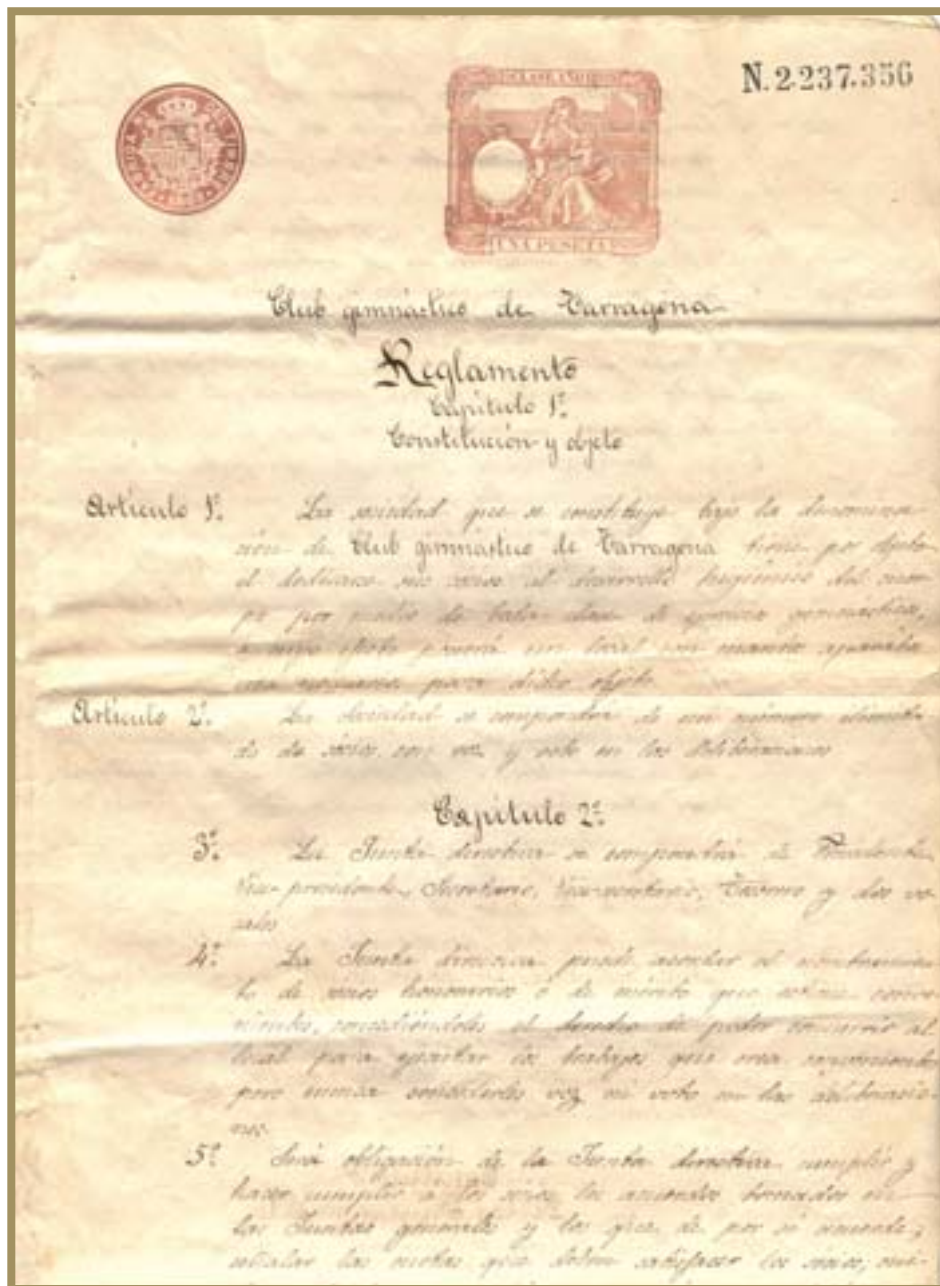 N. 2.237.356
UNA PESETA
Club gimnástico de Tarragona
Reglamento
Capítulo 1º
Constitución y objeto
Artículo 1º. La sociedad que se constituye bajo la denomina-
ción de Club gimnástico de Tarragona tiene por objeto
el dedicarse sus socios al desarrollo higiénico del cuer-
po por medio de toda clase de gimnástica,
a cuyo efecto un local con
para dicho objeto
Artículo 2º. La sociedad se compondrá de un número ilimita-
do de socios con voz y voto en las deliberaciones
Capítulo 2º
3º. La Junta directiva se compondrá de Presidente,
Vice-presidente, Secretario, Vice-secretario, Tesorero y dos vo-
cales
4º. La Junta directiva puede acordar el nombramien-
to de socios honorarios ó de mérito que estime conve-
nientes, concediéndoles el derecho de poder concurrir al
local para ejecutar los trabajos que crea conveniente
pero nunca concederles voz ni voto en las deliberacio-
nes.
5º. Será obligación de la Junta directiva cumplir y
hacer cumplir á los socios los acuerdos tomados en
las Juntas generales y los que de por si acuerde;
señalar las cuotas que deben satisfacer los socios;